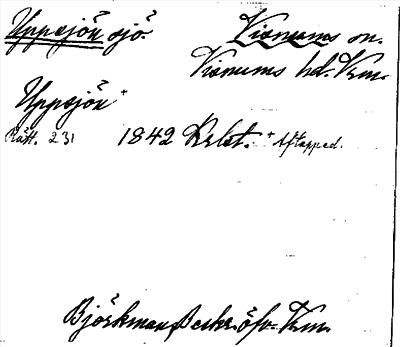 Uppsjön sjö. Visnums sn.
Visnums hd. Vrm.
Uppsjön +
Rätt. 231 1842 Krlst. + Aftappad.
Björkman, Beskr. öfv. Vrm.